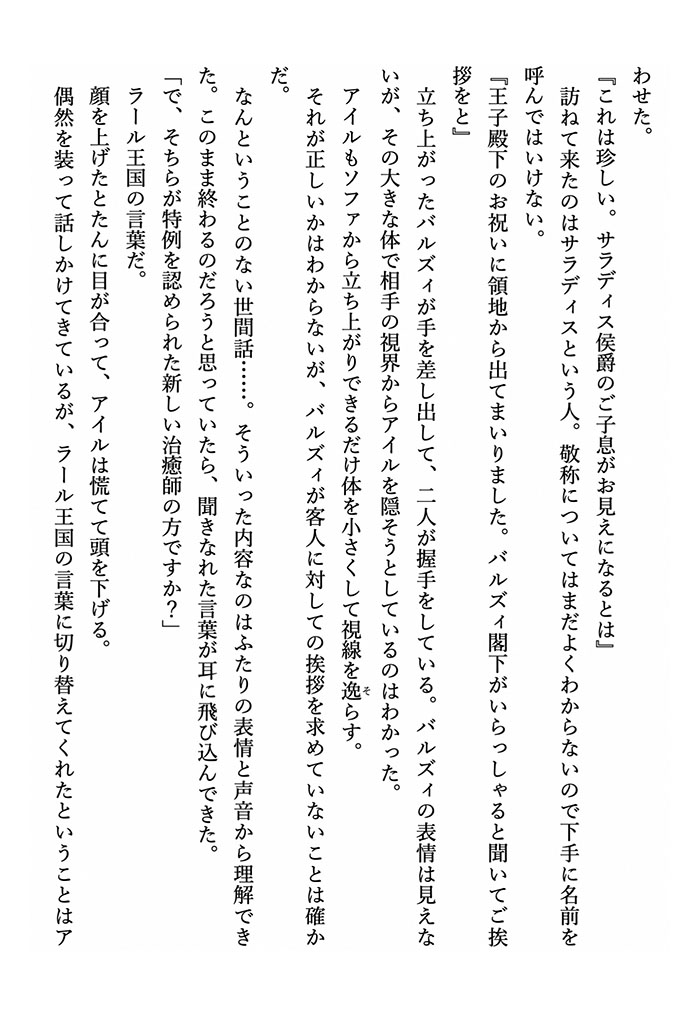 わせた。
『これは珍しい。サラディス侯爵のご子息がお見えになるとは』
訪ねて来たのはサラディスという人。敬称についてはまだよくわからないので下手に名前を
呼んではいけない。
『王子殿下のお祝いに領地から出てまいりました。バルズィ閣下がいらっしゃると聞いてご挨
拶をと』
立ち上がったバルズィが手を差し出して、二人が握手をしている。バルズィの表情は見えな
いが、その大きな体で相手の視界からアイルを隠そうとしているのはわかった。
アイルもソファから立ち上がりできるだけ体を小さくして視線を逸らす。
それが正しいかはわからないが、バルズィが客人に対しての挨拶を求めていないことは確か
だ。
なんということのない世間話……。そういった内容なのはふたりの表情と声音から理解でき
た。このまま終わるのだろうと思っていたら、聞きなれた言葉が耳に飛び込んできた。
「で、そちらが特例を認められた新しい治癒師の方ですか？」
ラール王国の言葉だ。
顔を上げたとたんに目が合って、アイルは慌てて頭を下げる。
偶然を装って話しかけてきているが、ラール王国の言葉に切り替えてくれたということはア